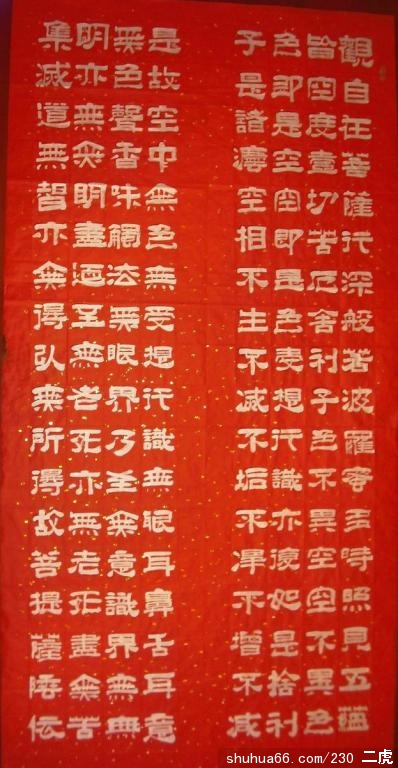 觀自在菩薩行深般若波羅蜜多時照見五蘊
皆空度壹切苦厄舍利子色不異空空不異色
色即是空空即是色受想行識亦復如是捨利
子是諸灋空相不生不滅不垢不淨不增不減
是故空中無色無受想行識無眼耳鼻舌耳意
無色聲香味觸法無眼界乃至無意識界無無
明亦無無明盡迺至無老死亦無老死盡無苦
集滅道無智亦無得以無所得故菩提薩埵依
shuhua66.com/230 二虎